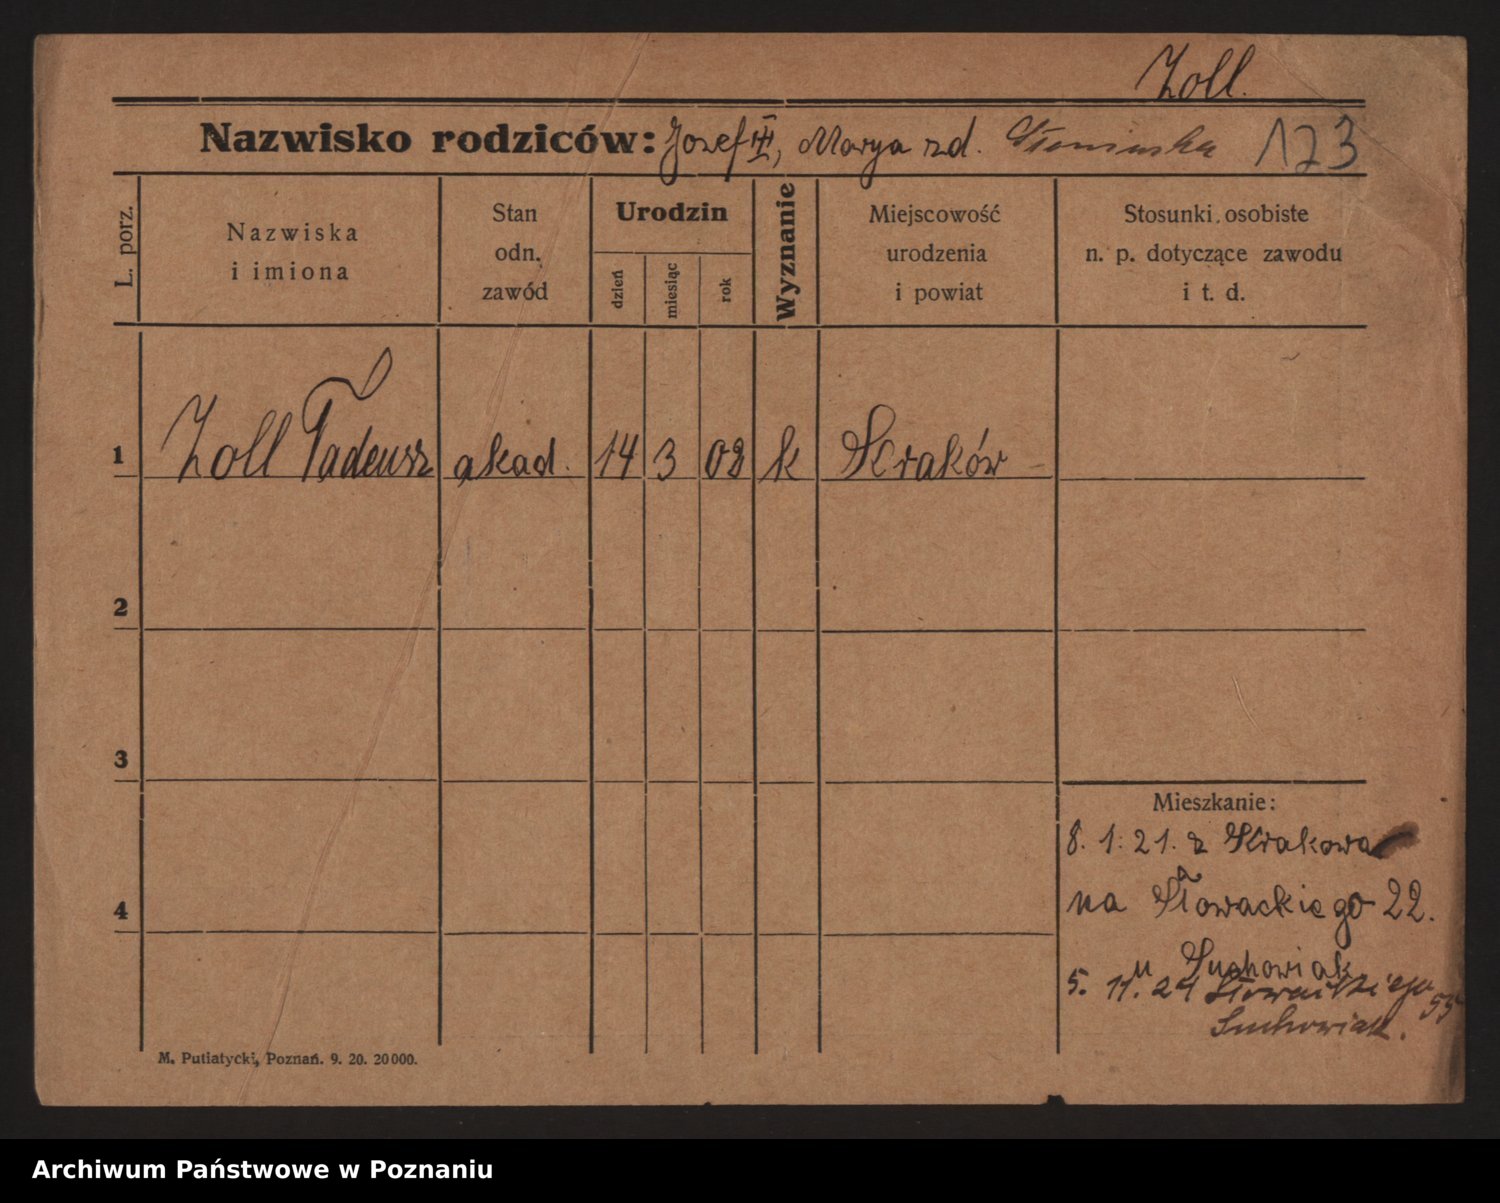 Zoll.
Nazwisko rodziców: Jozef III, Marya zd. 123
L. porz.
Nazwiska i imiona
Stan odn. zawód
Urodzin
dzień
miesiąc
rok
Wyznanie
Miejscowość urodzenia i powiat
Stosunki osobiste n. p. dotyczące zawodu i t. d.
1 Zoll Tadeusz akad. 14 3 02 k Kraków
2
3
4
Mieszkanie:
8. 1. 21. z Krakowa
na Słowackiego 22.
u Suchowiak
5. 11. 21 Słowackiego 55
Suchowiak.
M. Putiatycki, Poznań. 9. 20. 20000.
Archiwum Państwowe w Poznaniu